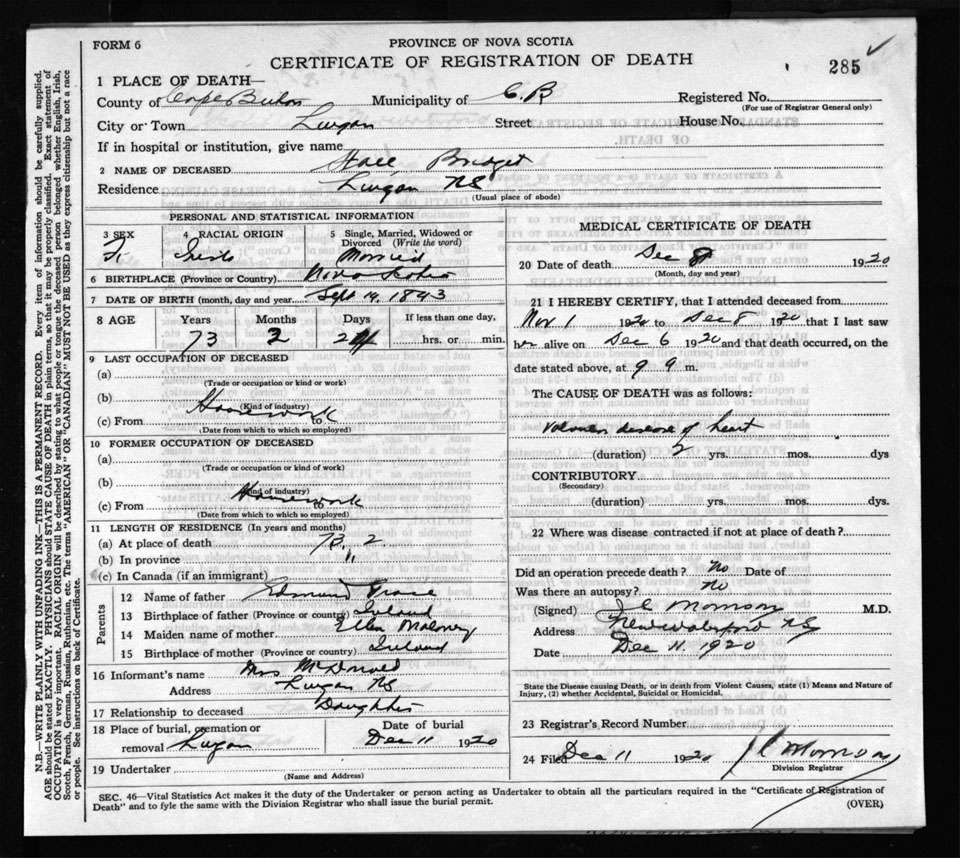 FORM 6
PROVINCE OF NOVA SCOTIA
CERTIFICATE OF REGISTRATION OF DEATH
285
1 PLACE OF DEATH—
County of Cape Breton Municipality of C.B Registered No.
(For use of Registrar General only)
City or Town Lingan Street House No.
If in hospital or institution, give name
2 NAME OF DECEASED Bridget
Residence Lingan NS
(Usual place of abode)
PERSONAL AND STATISTICAL INFORMATION
3 SEX 4 RACIAL ORIGIN 5 Single, Married, Widowed or Divorced (Write the word)
F. Irish Married
6 BIRTHPLACE (Province or Country) Nova Scotia
7 DATE OF BIRTH (month, day and year) Sept 14, 1843
8 AGE Years Months Days If less than one day,
73 2 hrs. or min.
9 LAST OCCUPATION OF DECEASED
(a)
(Trade or occupation or kind or work)
(b)
(Kind of industry)
Housework
(c) From to
(Date from which to which so employed)
10 FORMER OCCUPATION OF DECEASED
(a)
(Trade or occupation or kind of work)
(b)
(Kind of industry)
Housework
(c) From to
(Date from which to which so employed)
11 LENGTH OF RESIDENCE (In years and months)
(a) At place of death 73. 2
(b) In province "
(c) In Canada (if an immigrant)
Parents
12 Name of father Edmund
13 Birthplace of father (Province or country) Ireland
14 Maiden name of mother Ellen
15 Birthplace of mother (Province or country) Ireland
16 Informant's name Mrs McDonald
Address Lingan NS
17 Relationship to deceased Daughter
18 Place of burial, cremation or removal Lingan
Date of burial Dec 11 1920
19 Undertaker
(Name and Address)
MEDICAL CERTIFICATE OF DEATH
20 Date of death Dec 8 1920
(Month, day and year)
21 I HEREBY CERTIFY, that I attended deceased from
Nov 1 1920 to Dec 8 1920 that I last saw
her alive on Dec 6 1920 and that death occurred, on the
date stated above, at 9 9 m.
The CAUSE OF DEATH was as follows:
disease of heart
(duration) 2 yrs. mos. dys
CONTRIBUTORY
(Secondary)
(duration) yrs. mos. dys.
22 Where was disease contracted if not at place of death?
Did an operation precede death? no Date of
Was there an autopsy? no
(Signed) J C Morrison M.D.
Address New Waterford NS
Date Dec 11. 1920
State the Disease causing Death, or in death from Violent Causes, state (1) Means and Nature of
Injury, (2) whether Accidental, Suicidal or Homicidal.
23 Registrar's Record Number
24 Filed Dec 11 1920 J C Morrison
Division Registrar
SEC. 46—Vital Statistics Act makes it the duty of the Undertaker or person acting as Undertaker to obtain all the particulars required in the "Certificate of Registration of
Death" and to fyle the same with the Division Registrar who shall issue the burial permit.
(OVER)
N.B.—WRITE PLAINLY WITH UNFADING INK—THIS IS A PERMANENT RECORD. Every item of information should be carefully supplied.
AGE should be stated EXACTLY. PHYSICIANS should STATE CAUSE OF DEATH in plain terms, so that it may be properly classified. Exact statement of
OCCUPATION is very important. RACIAL ORIGIN will be described by stating to what people or tongue the deceased person belonged whether English, Irish,
Scotch, French, German, Russian, Ruthenian, etc. The terms "AMERICAN" OR "CANADIAN" MUST NOT BE USED as they express citizenship but not a race
or people. See instructions on back of Certificate.